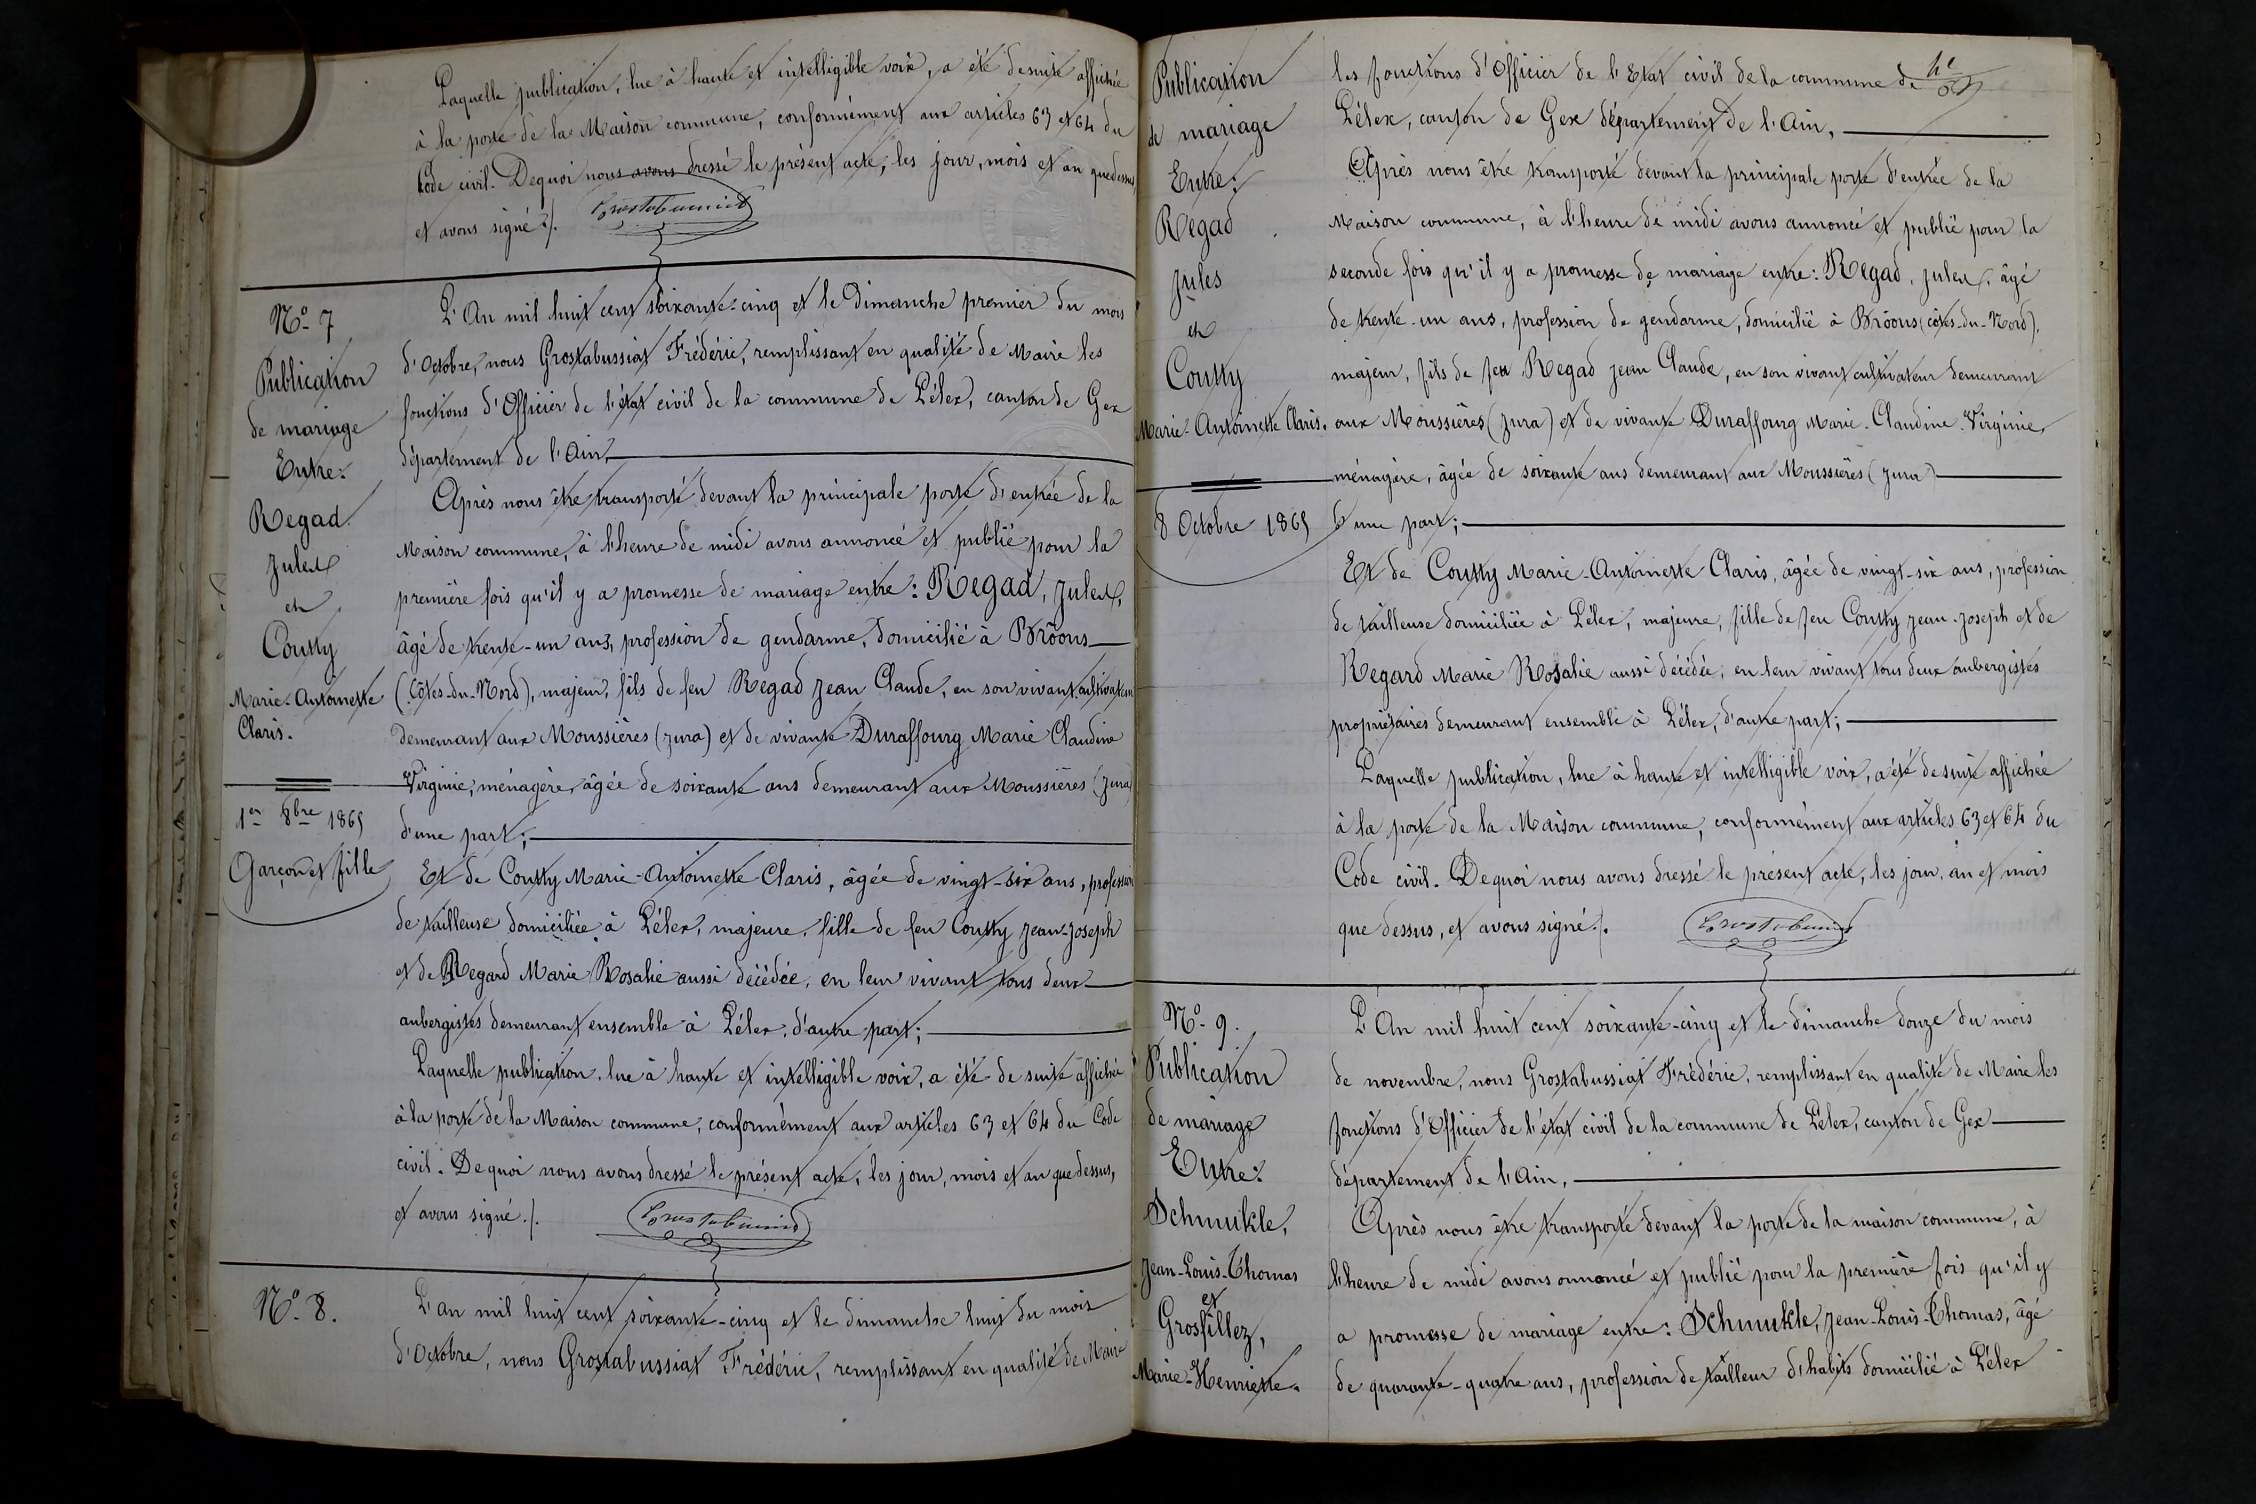 Laquelle publication, lue à haute et intelligible voix, a été desuite affichée
à la porte de la Maison commune, conformément aux articles 63 et 64 du
Code civil. Dequoi nous avons dressé le présent acte, les jour, mois et an quedessus,
et avons signé ./.
Grostabussiat
N° 7
Publication
de mariage
Entre:
Regad
Jules
et
Coutty
Marie-Antoinette
Claris.
1er 8bre 1865
Garçon et fille
L'An mil huit cent soixante-cinq et le Dimanche premier du mois
d'Octobre, nous Grostabussiat Frédéric, remplissant en qualité de Maire les
fonctions d'Officier de l'état civil de la commune de Lélex, canton de Gex
département de l'Ain,
Après nous être transporté devant la principale porte d'entrée de la
Maison commune, à l'heure de midi avons annoncé et publié pour la
première fois qu'il y a promesse de mariage entre: Regad, Jules,
âgé de trente-un ans, profession de gendarme, domicilié à Brôons
(Côtes-du-Nord), majeur, fils de feu Regad Jean Claude, en son vivant cultivateur
demeurant aux Moussières (Jura) et de vivante Duraffourg Marie Claudine
Virginie, ménagère, âgée de soixante ans demeurant aux Moussières (Jura)
d'une part;
Et de Coutty Marie-Antoinette Claris, âgée de vingt-six ans, profession
de tailleuse domiciliée à Lélex, majeure, fille de feu Coutty Jean-Joseph
et de Regard Marie Rosalie aussi décédée, en leur vivant tous deux
aubergistes demeurant ensemble à Lélex, d'autre part;
Laquelle publication, lue à haute et intelligible voix, a été de suite affichée
à la porte de la Maison commune, conformément aux articles 63 et 64 du Code
civil. Dequoi nous avons dressé le présent acte, les jour, mois et an quedessus,
et avons signé ./.
Grostabussiat
N° 8.
L'an mil huit cent soixante-cinq et le dimanche huit du mois
d'Octobre, nous Grostabussiat Frédéric, remplissant en qualité de Maire
Publication
de mariage
Entre:
Regad
Jules
et
Coutty
Marie-Antoinette Claris.
8 Octobre 1865
les fonctions d'Officier de l'Etat civil de la commune de
Lélex, canton de Gex département de l'Ain,
Après nous être transporté devant la principale porte d'entrée de la
Maison commune, à l'heure de midi avons annoncé et publié pour la
seconde fois qu'il y a promesse de mariage entre: Regad, Jules, âgé
de trente-un ans, profession de gendarme, domicilié à Brôons (côtes-du-Nord),
majeur, fils de feu Regad Jean Claude, en son vivant cultivateur demeurant
aux Moussières (Jura) et de vivante Duraffourg Marie-Claudine-Virginie,
ménagère, âgée de soixante ans demeurant aux Moussières (Jura)
d'une part;
Et de Coutty Marie-Antoinette Claris, âgée de vingt-six ans, profession
de tailleuse domiciliée à Lélex, majeure, fille de feu Coutty Jean-Joseph et de
Regard Marie Rosalie aussi décédée, en leur vivant tous deux aubergistes
propriétaires demeurant ensemble à Lélex, d'autre part;
Laquelle publication, lue à haute et intelligible voix, a été de suite affichée
à la porte de la Maison commune, conformément aux articles 63 et 64 du
Code civil. Dequoi nous avons dressé le présent acte, les jour, an et mois
que dessus, et avons signé ./.
Grostabussiat
N° 9.
Publication
de mariage
Entre:
Schmukle,
Jean-Louis-Thomas
et
Grosfillez,
Marie-Henriette.
L'An mil huit cent soixante-cinq et le dimanche douze du mois
de novembre, nous Grostabussiat Frédéric, remplissant en qualité de Maire les
fonctions d'Officier de l'état civil de la commune de Lélex, canton de Gex
département de l'Ain,
Après nous être transporté devant la porte de la maison commune, à
l'heure de midi avons annoncé et publié pour la première fois qu'il y
a promesse de mariage entre: Schmukle, Jean-Louis-Thomas, âgé
de quarante-quatre ans, profession de tailleur d'habits domicilié à Lélex